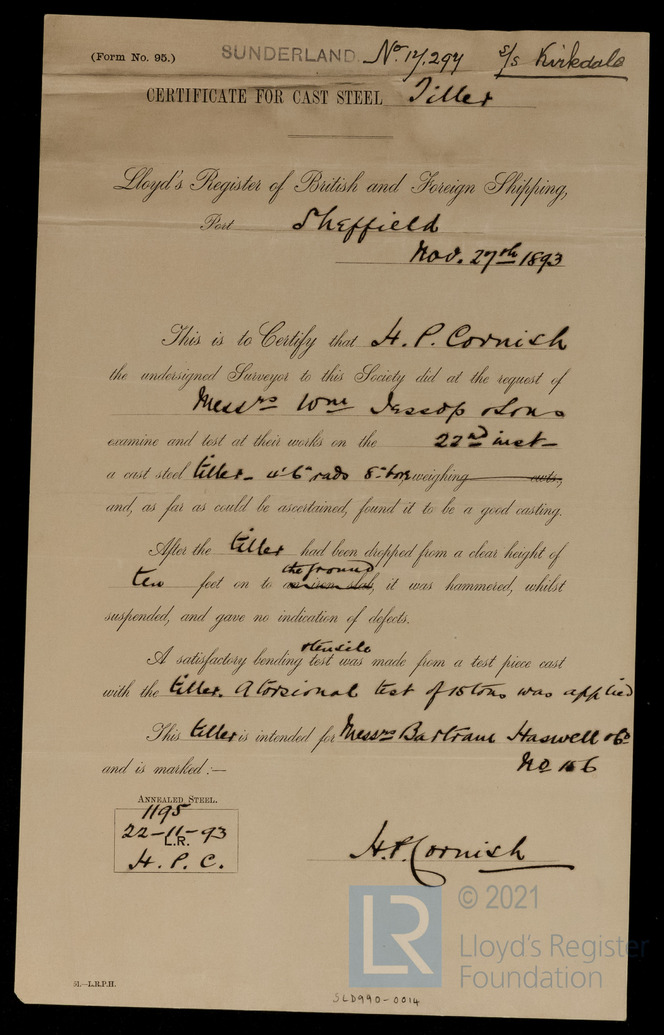 (Form No. 95.) SUNDERLAND. No. 12,297 s/s Kirkdale
CERTIFICATE FOR CAST STEEL Tiller
Lloyd's Register of British and Foreign Shipping,
Port Sheffield
Nov. 27th 1893
This is to Certify that H. P. Cornish
the undersigned Surveyor to this Society did at the request of
Messrs Wm Jessop & Sons
examine and test at their works on the 22nd inst
a cast steel tiller - 4' 6" rads 8" bore weighing cwts.,
and, as far as could be ascertained, found it to be a good casting.
After the tiller had been dropped from a clear height of
the ground
ten feet on to an iron slab, it was hammered, whilst
suspended, and gave no indication of defects.
& tensile
A satisfactory bending test was made from a test piece cast
with the tiller. A torsional test of 15 tons was applied
This tiller is intended for Messrs Bartram Haswell & Co
and is marked:— No 166
ANNEALED STEEL.
1195
22-11-93
L.R.
H. P. C.
H.P. Cornish
LR
© 2021
Lloyd's Register
Foundation
51.—L.R.P.H.
SLD990-0014